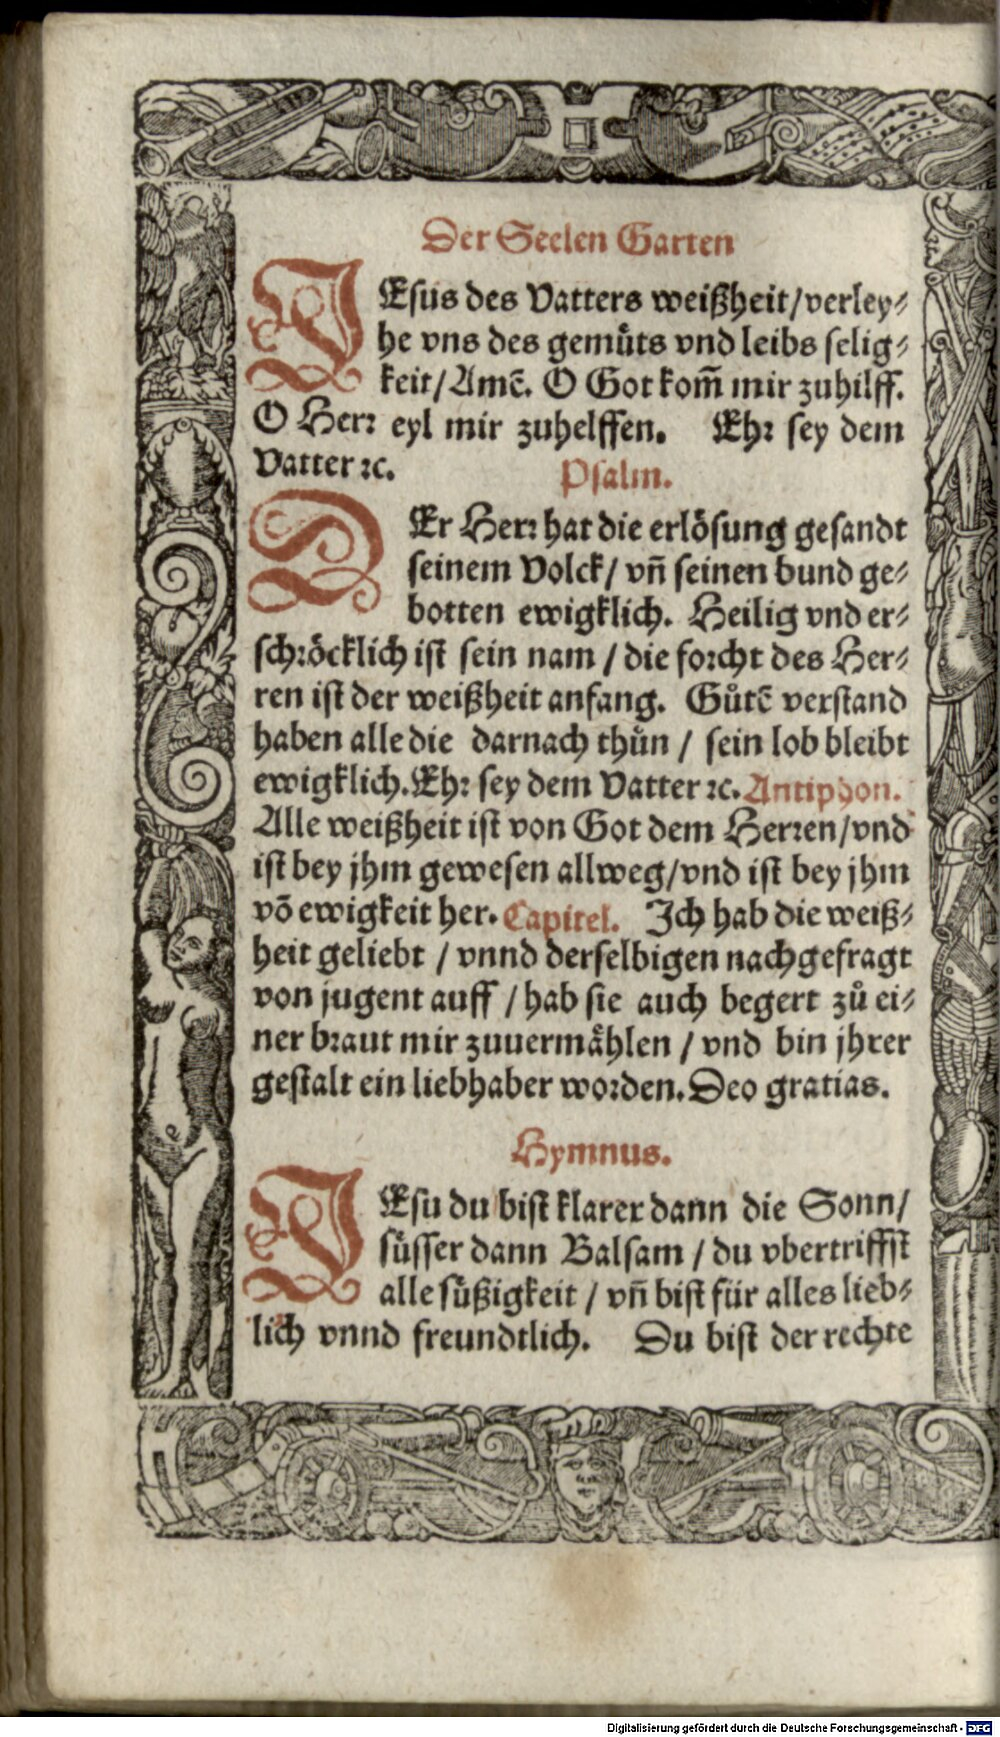 Der Seelen Garten
JEsus des Vatters weißheit/verley⸗
he vns des gemuͤts vnd leibs selig⸗
keit/Amē. O Got kom̄ mir zuhilff.
O Herꝛ eyl mir zuhelffen. Ehꝛ sey dem
Vatter ꝛc. Psalm.
DEr Herꝛ hat die erloͤsung gesandt
seinem Volck/ vn̄ seinen bund ge⸗
botten ewigklich. Heilig vnd er⸗
schꝛoͤcklich ist sein nam / die foꝛcht des Her⸗
ren ist der weißheit anfang. Guͤtē verstand
haben alle die darnach thuͤn / sein lob bleibt
ewigklich. Ehꝛ sey dem Vatter ꝛc. Antiphon.
Alle weißheit ist von Got dem Herꝛen/vnd
ist bey jhm gewesen allweg/vnd ist bey jhm
võ ewigkeit her. Capitel. Ich hab die weiß⸗
heit geliebt / vnnd derselbigen nachgefragt
von jugent auff / hab sie auch begert zů ei⸗
ner bꝛaut mir zuuermaͤhlen / vnd bin jhrer
gestalt ein liebhaber woꝛden. Deo gratias.
Hymnus.
JEsu du bist klarer dann die Sonn/
suͤsser dann Balsam / du vbertriffst
alle suͤßigkeit / vn̄ bist für alles lieb⸗
lich vnnd freundtlich. Du bist der rechte
Digitalisierung gefördert durch die Deutsche Forschungsgemeinschaft - DFG